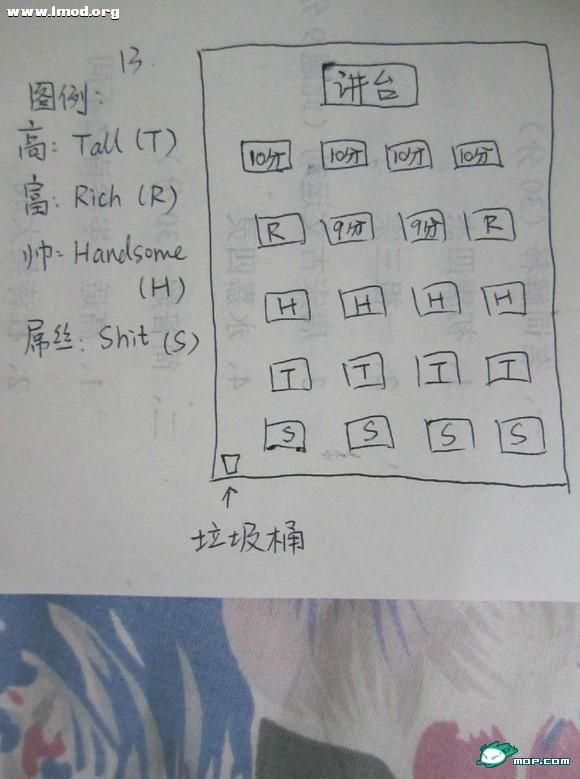 www.lmod.org
13.
图例:
高: Tall (T)
富: Rich (R)
帅: Handsome
(H)
屌丝: Shit (S)
讲台
10分 10分 10分 10分
R 9分 9分 R
H H H H
T T T T
S S S S
垃圾桶
mop.com